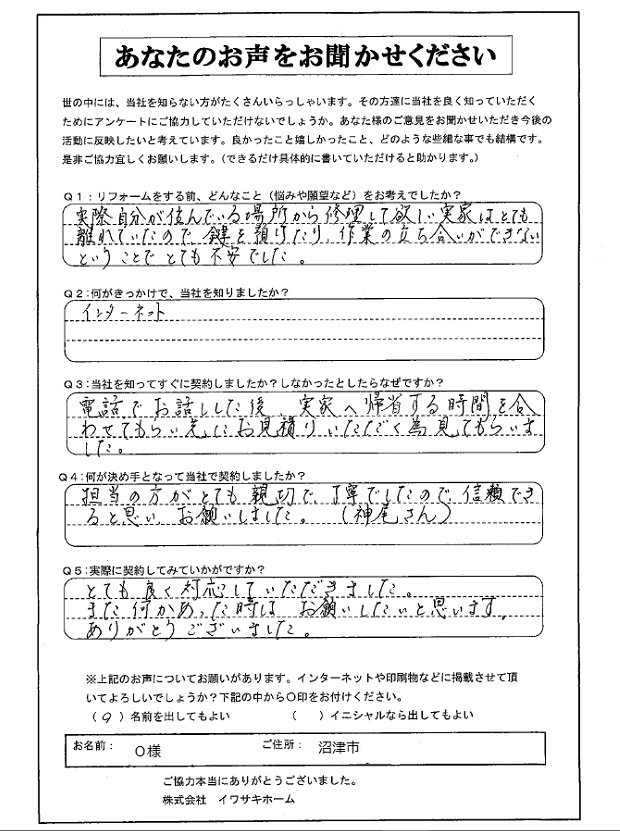 あなたのお声をお聞かせください
世の中には、当社を知らない方がたくさんいらっしゃいます。その方達に当社を良く知っていただく
ためにアンケートにご協力していただけないでしょうか。あなた様のご意見をお聞かせいただき今後の
活動に反映したいと考えています。良かったこと嬉しかったこと、どのような些細な事でも結構です。
是非ご協力宜しくお願いします。（できるだけ具体的に書いていただけると助かります。）
Ｑ１：リフォームをする前、どんなこと（悩みや願望など）をお考えでしたか？
実際自分が住んでいる場所から修理して欲しい実家はとても
離れていたので、鍵を預けたり、作業の立ち合いができない
ということでとても不安でした。
Ｑ２：何がきっかけで、当社を知りましたか？
インターネット
Ｑ３：当社を知ってすぐに契約しましたか？しなかったとしたらなぜですか？
電話でお話しした後、実家へ帰省する時間を合
わせてもらい先にお見積りいただく為見てもらいま
した。
Ｑ４：何が決め手となって当社で契約しましたか？
担当の方がとても親切で、丁寧でしたので、信頼でき
ると思い、お願いしました。（神尾さん）
Ｑ５：実際に契約してみていかがですか？
とても良く対応していただきました。
また何かあった時は、お願いしたいと思います。
ありがとうございました。
※上記のお声についてお願いがあります。インターネットや印刷物などに掲載させて頂
いてよろしいでしょうか？下記の中から〇印をお付けください。
（○）名前を出してもよい （ ）イニシャルなら出してもよい
お名前： Ｏ様 ご住所： 沼津市
ご協力本当にありがとうございました。
株式会社 イワサキホーム